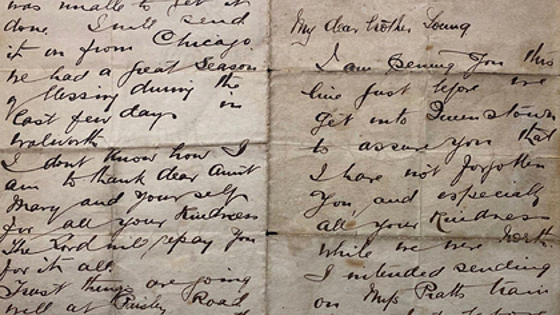 My dear brother Young
I am penning you this
line just before we
get into Queenstown
to assure you that
I have not forgotten
you, and especially
all your Kindness
while we were North
I intended sending
on Miss Pratts train
was unable to get it
done. I will send
it on from Chicago.
We had a great Season
of blessing during the
last few days in
Walworth
I dont know how I
am to thank dear Aunt
Mary and yourself
for all your Kindness
The Lord will repay you
for it all.
Trust things are going
well at Paisley Road